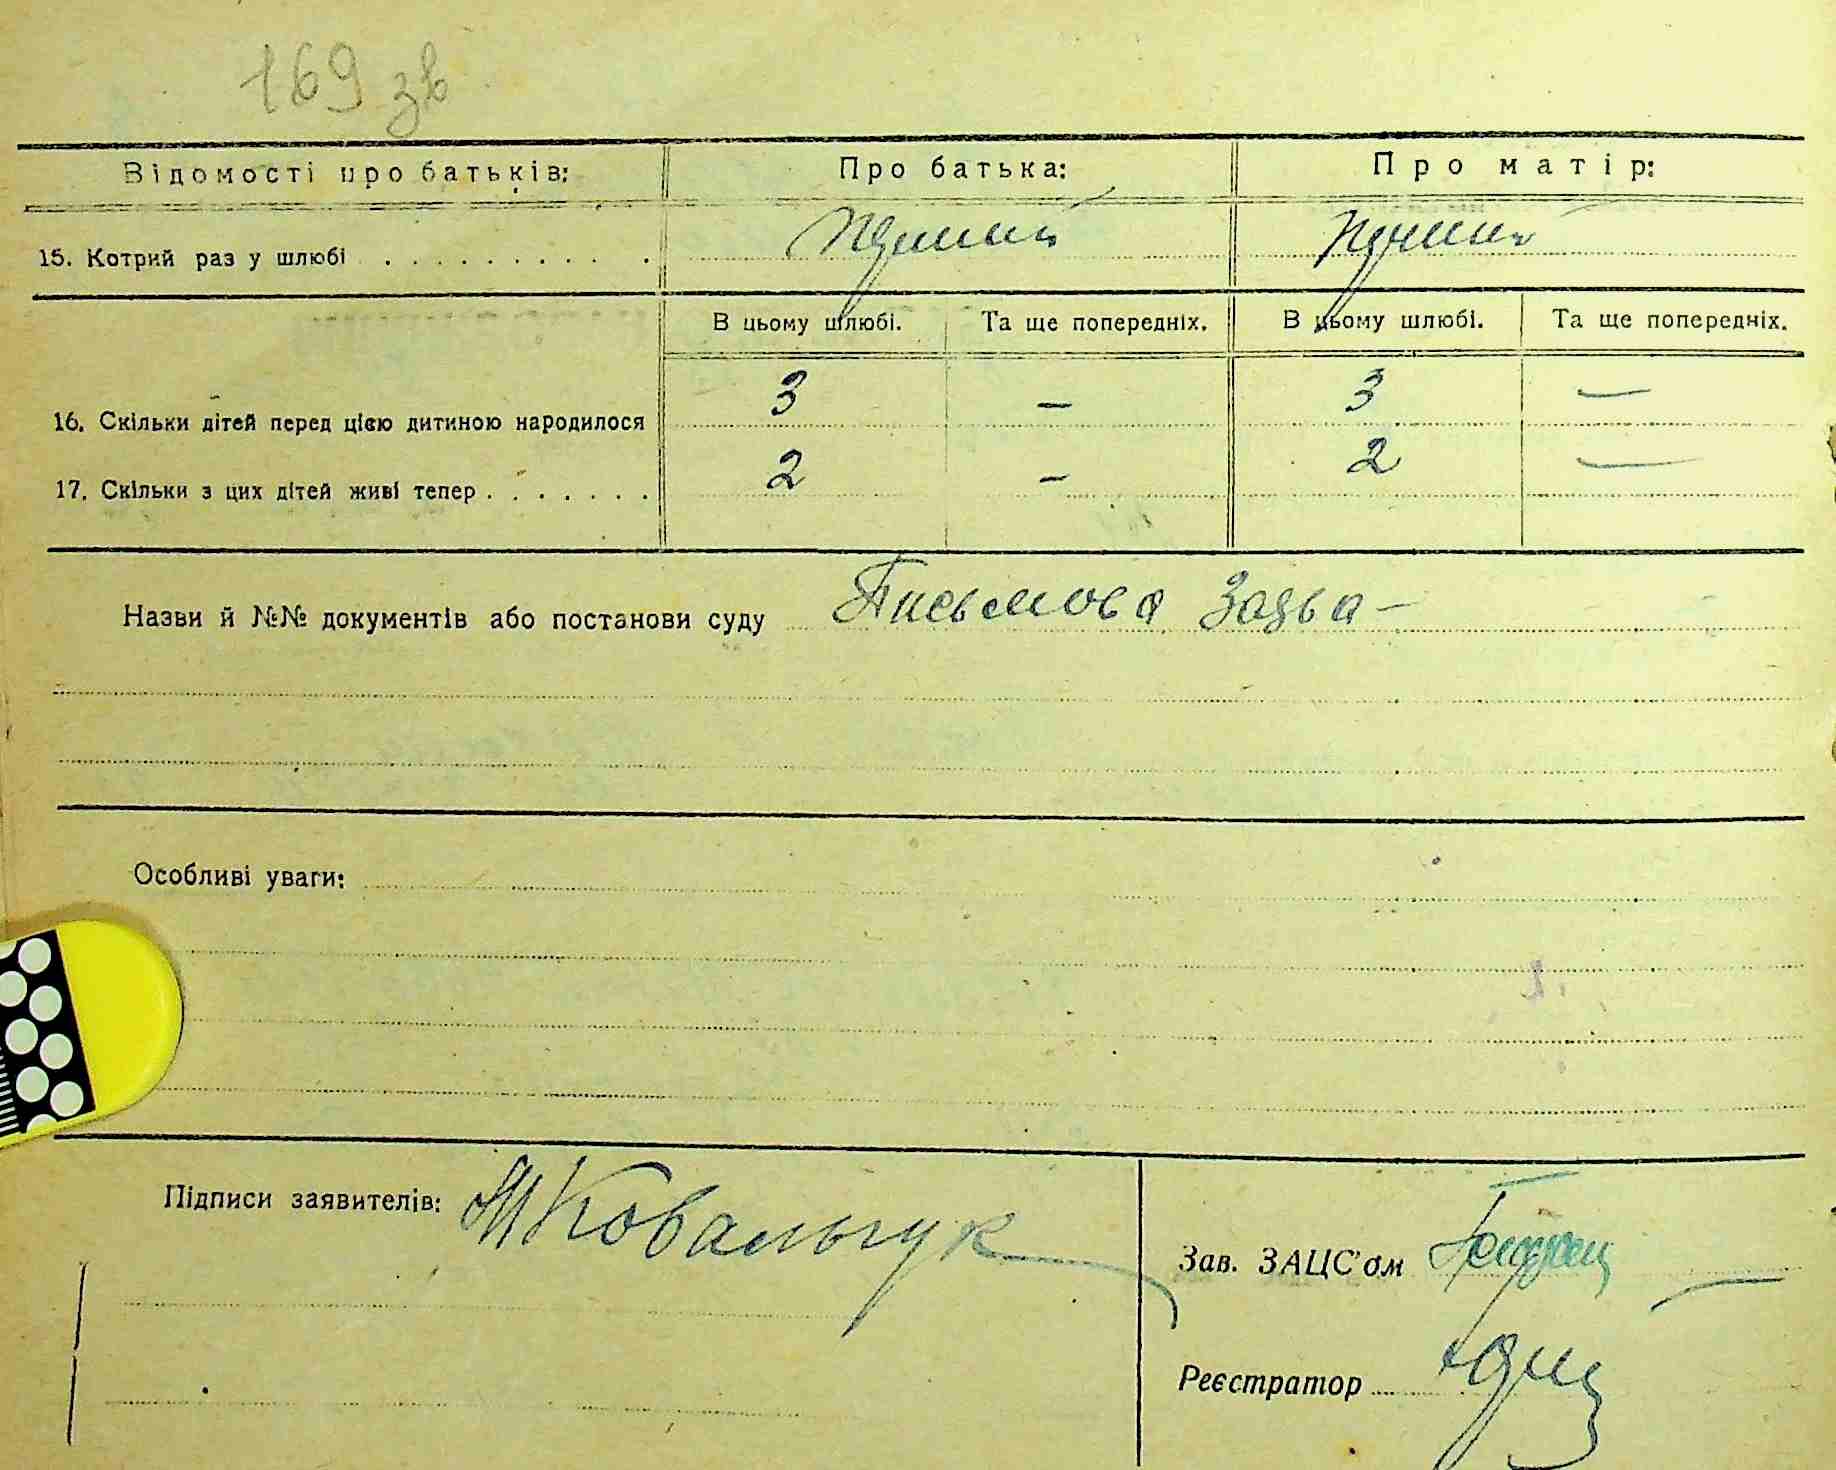 169 зв
Відомості про батьків: Про батька: Про матір:
15. Котрий раз у шлюбі . . . . . . . . . . перший перший
В цьому шлюбі. Та ще попередніх. В цьому шлюбі. Та ще попередніх.
16. Скільки дітей перед цією дитиною народилося 3 — 3 —
17. Скільки з цих дітей живі тепер . . . . . . . 2 — 2 —
Назви й №№ документів або постанови суду Письмова Заява —
Особливі уваги:
Підписи заявителів: Ковальчук
Зав. ЗАЦС'ом
Реєстратор